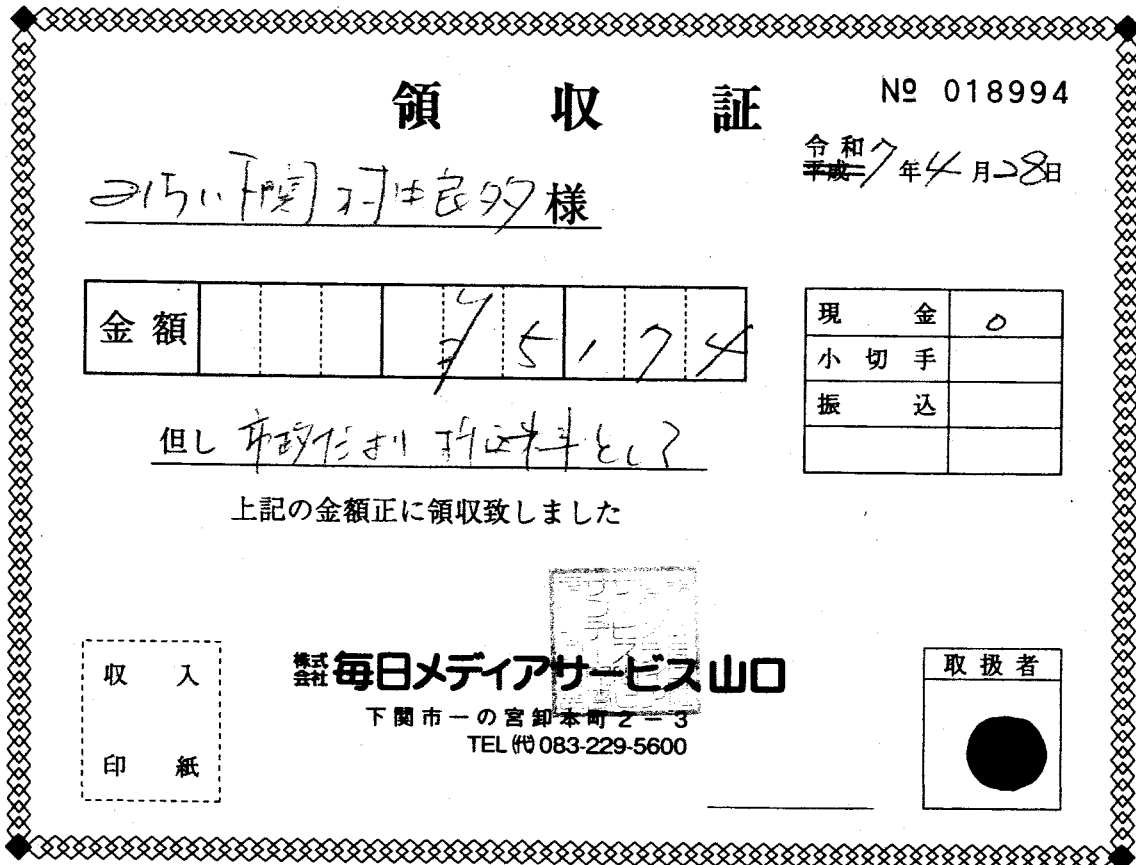 領収証
№ 018994
令和
平成 7年4月28日
みらい下関 村中良多 様
金額 ¥5,174
現金 0
小切手
振込
但し 市政だより 折込料として
上記の金額正に領収致しました
収入
印紙
株式会社 毎日メディアサービス山口
下関市一の宮卸本町2-3
TEL㈹083-229-5600
取扱者